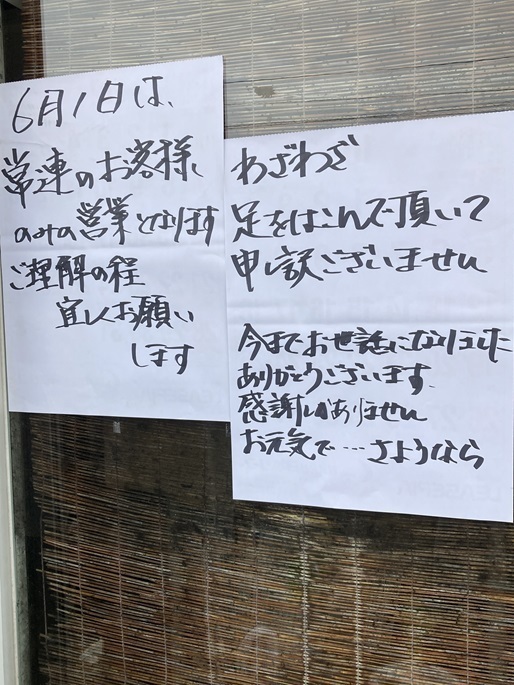 6月1日は、
常連のお客様
のみの営業となります
ご理解の程
宜しくお願い
します
わざわざ
足をはこんで頂いて
申し訳ございません
今までお世話になりました
ありがとうございます.
感謝しかありません
お元気で…さようなら